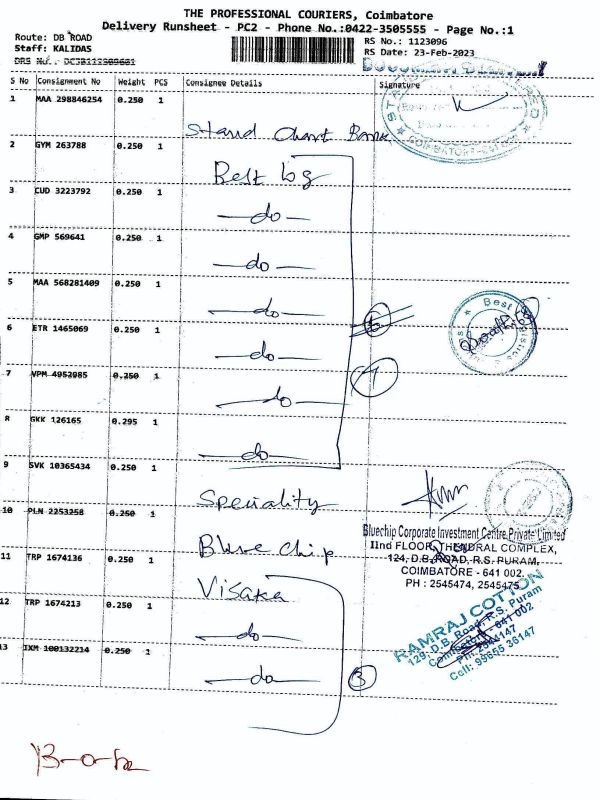 THE PROFESSIONAL COURIERS, Coimbatore
Delivery Runsheet - PC2 - Phone No.:0422-3505555 - Page No.:1
Route: DB ROAD
RS No.: 1123096
Staff: KALIDAS
RS Date: 23-Feb-2023
S No Consignment No Weight PCS Consignee Details Signature
1 MAA 298846254 0.250 1
Stand Chart Bank
2 GYM 263788 0.250 1
Best log
3 CUD 3223792 0.250 1
—do—
4 GMP 569641 0.250 1
—do—
5 MAA 568281409 0.250 1
—do—
6 ETR 1465069 0.250 1
—do—
7 VPM 4952985 0.250 1
—do—
8 GKK 126165 0.295 1
—do—
9 SVK 10365434 0.250 1
Speciality
10 PLN 2253258 0.250 1
Bluechip Corporate Investment Centre Private Limited
IInd FLOOR, THENDRAL COMPLEX,
124, D.B. ROAD, R.S. PURAM,
COIMBATORE - 641 002.
PH : 2545474, 2545475
Blue chip
11 TRP 1674136 0.250 1
Visaka
12 TRP 1674213 0.250 1
—do—
RAMRAJ COTTON
129, D.B. Road, R.S. Puram
Coimbatore - 641 002
Cell: 99655 36147
13 IXM 100132214 0.250 1
—do— 3